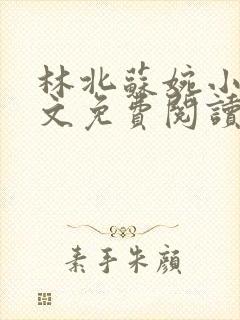 林北蘇婉小
文免費閱讀
素手朱顏